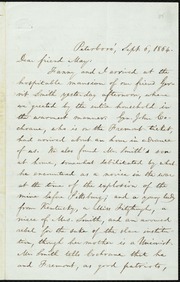 Peterboro', Sept. 6, 1864.
Dear friend May:
Fanny and I arrived at the
hospitable mansion of our friend Ger-
rit Smith yesterday afternoon, where
we greeted by the entire household in
the warmest manner. Gen. John Co-
chrane, who is on the Fremont ticket,
had arrived about an hour in advance
of us. We also found Mr. Smith's son
at home, somewhat debilitated by what
he encountered as a novice in the war
at the time of the explosion of the
mine before Petersburg; and a young lady
from Kentucky, a Miss Fitzhugh, a
niece of Mrs. Smith, and an avowed
rebel for the sake of the slave institu-
tion, though her mother is a Unionist.
Mr. Smith tells Cochrane that he
and Fremont, as good patriots,